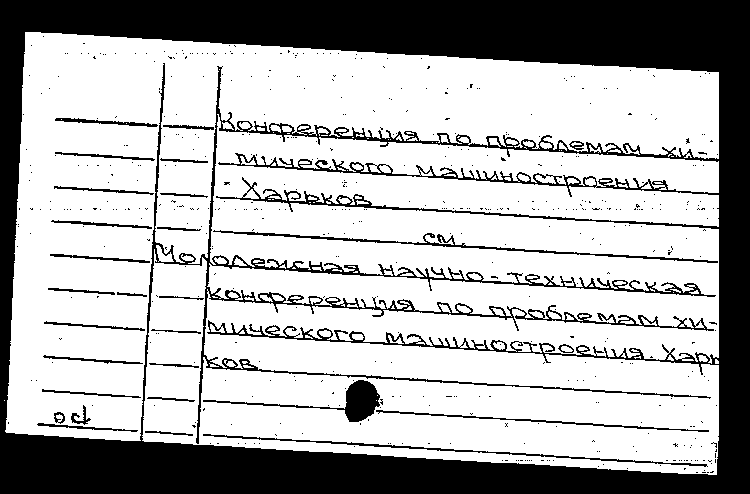 Конференция по проблемам хи-
мического машиностроения
Харьков
см.
Молодежная научно-техническая
конференция по проблемам хи-
мического машиностроения. Харь
ков